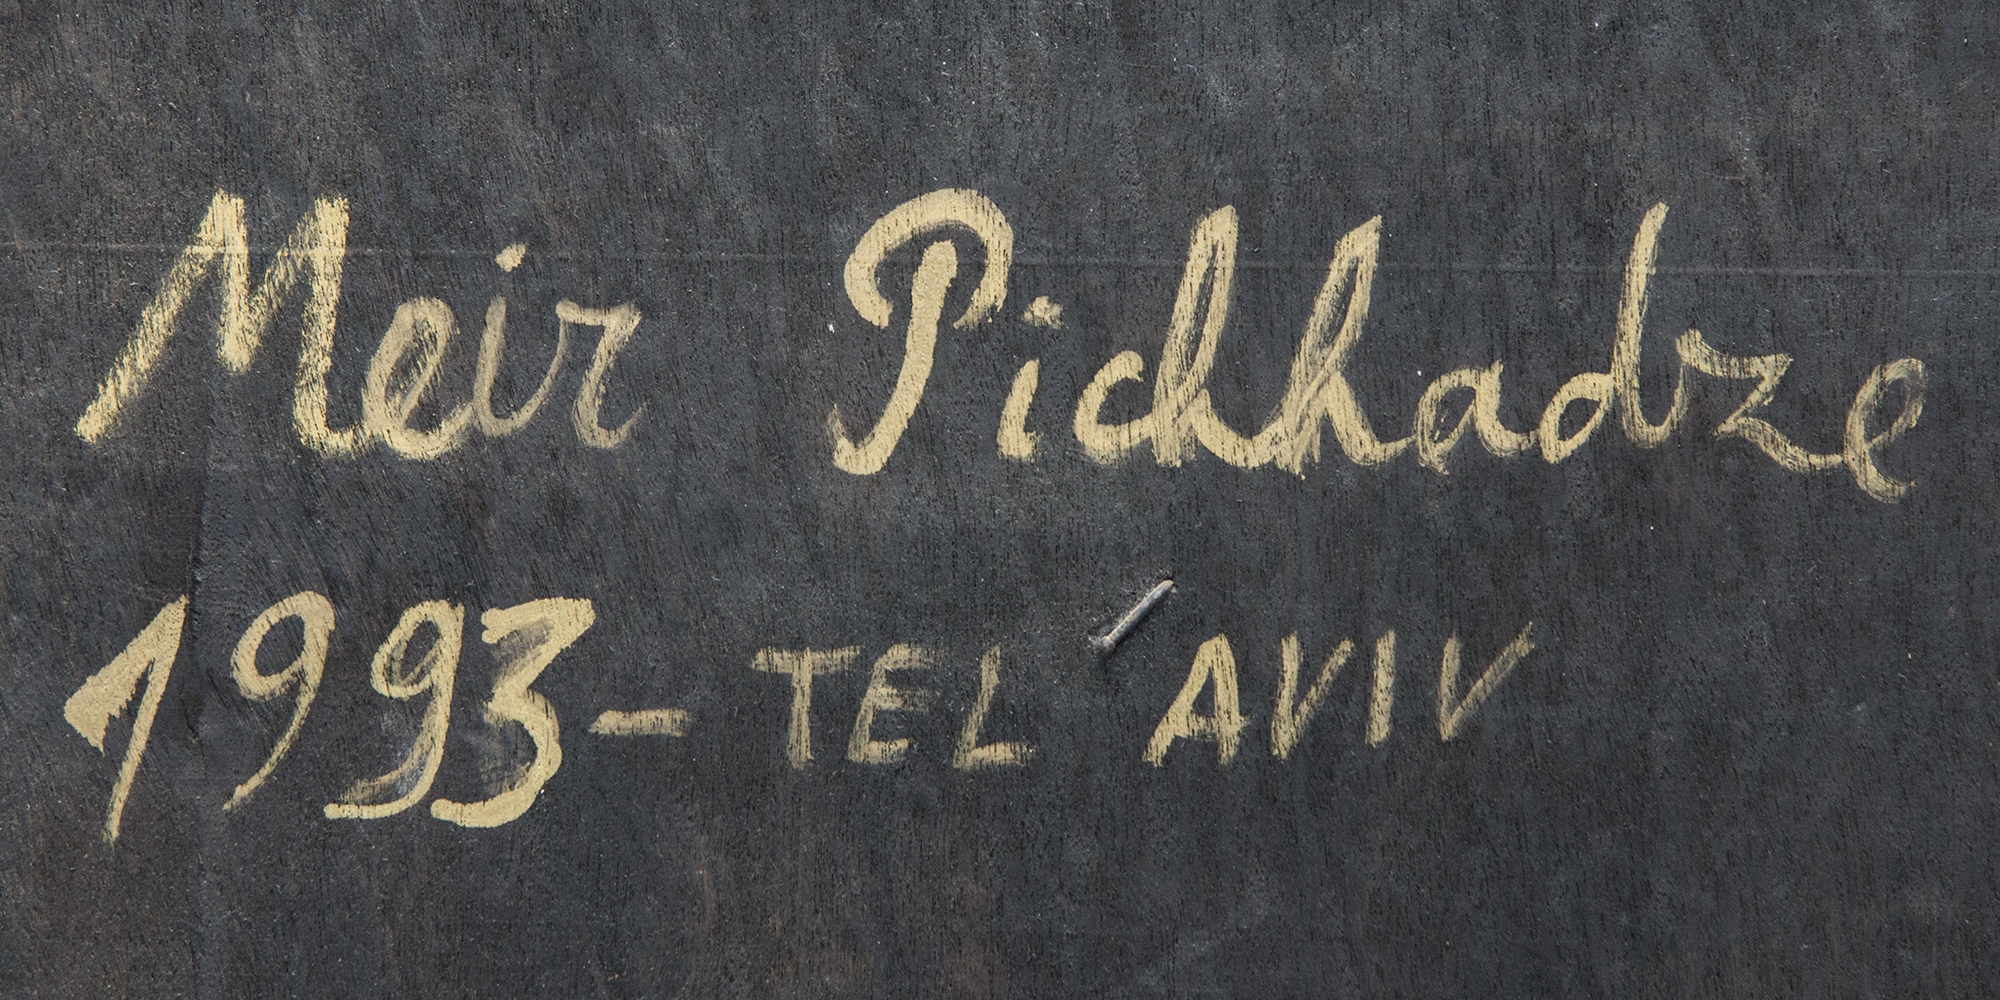 Meir Pichhadze
1993 - TEL AVIV